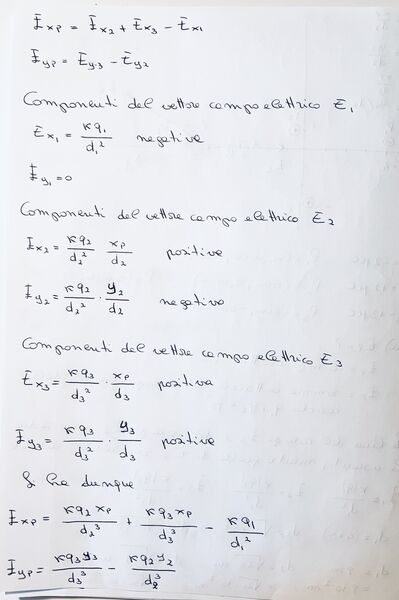 E_xp = E_x2 + E_x3 - E_x1
E_yp = E_y3 - E_y2
Componenti del vettore campo elettrico E_1
E_x1 = kq_1/d_1^2 negative
E_y1 = 0
Componenti del vettore campo elettrico E_2
E_x2 = kq_2/d_2^2 x_p/d_2 positive
E_y2 = kq_2/d_2^2 · y_2/d_2 negativo
Componenti del vettore campo elettrico E_3
E_x3 = kq_3/d_3^2 · x_p/d_3 positiva
E_y3 = kq_3/d_3^2 · y_3/d_3 positive
Si ha dunque
E_xp = kq_2 x_p/d_2^3 + kq_3 x_p/d_3^3 - kq_1/d_1^2
E_yp = kq_3 y_3/d_3^3 - kq_2 y_2/d_2^3